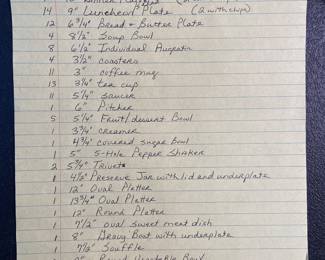 14 9" Luncheon Plate (2 with chips)
12 6 3/4" Bread & Butter Plate
4 8 1/2" Soup Bowl
8 6 1/2" Individual Augratin
4 3 1/2" coasters
11 3" coffee mug
13 3 3/4" tea cup
11 5 1/4" saucer
1 6" Pitcher
5 5 1/4" Fruit/dessert Bowl
1 3 3/4" creamer
1 4 3/4" covered sugar Bowl
1 5" 5-Hole Pepper Shaker
2 5 3/4" Trivets
1 4 1/2" Preserve Jar with lid and underplate
1 12" Oval Platter
1 13 3/4" Oval Platter
1 12" Round Platter
1 7 1/2" oval sweet meat dish
1 8" Gravy Boat with underplate
1 7 1/2" Souffle
Round Vegetable Bowl